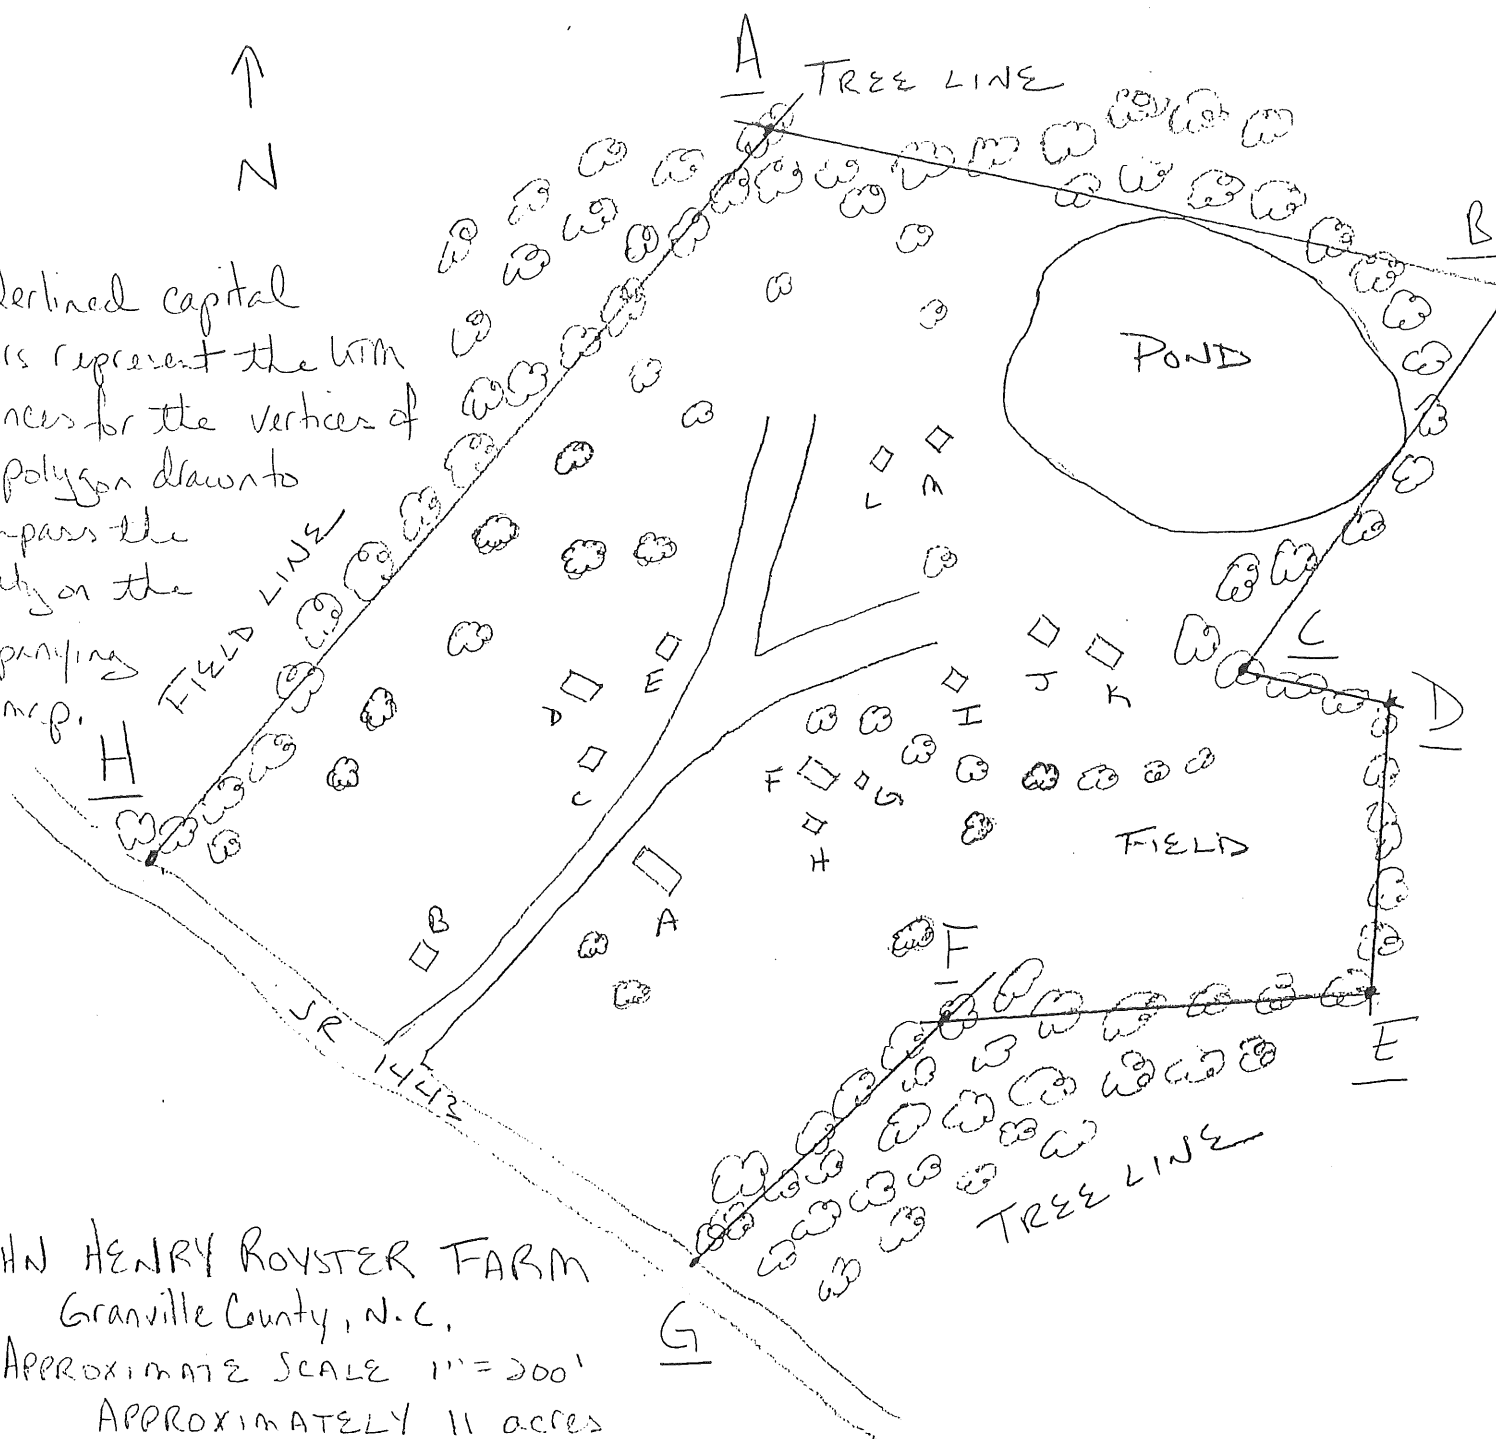 A
TREE LINE
N
B
derlined capital
rs represent the UTM
nces for the vertices of
polygon drawn to
mpass the
ty on the
panying
map.
POND
L
M
FIELD LINE
C
D
E
D
J
K
I
H
C
F
G
H
FIELD
A
B
F
SR
1443
E
TREE LINE
G
HN HENRY ROYSTER FARM
Granville County, N.C.
APPROXIMATE SCALE 1"=200'
APPROXIMATELY 11 acres